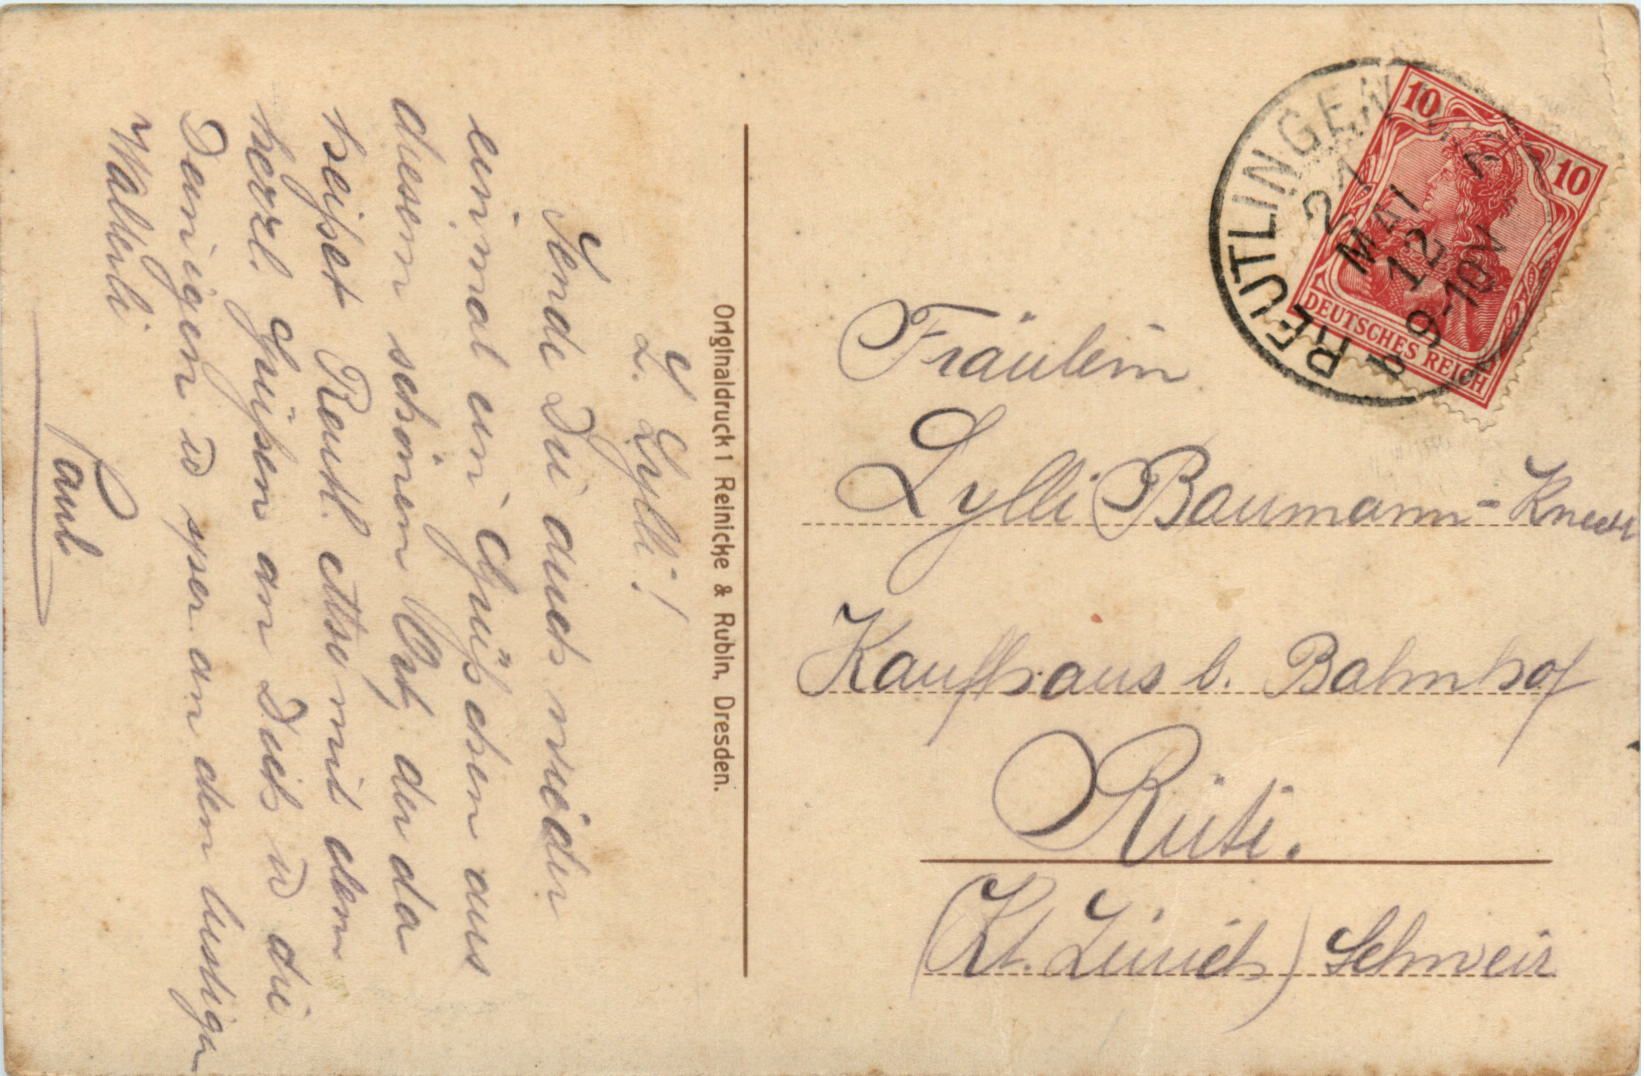 L. Lylli!
Sende Dir auch wieder
einmal ein Grüßchen aus
diesem schönen Ort, der da
heißet Reutl. Also mit den
herzl. Grüßen an Dich u die
Deinigen u spez. an den lustigen
Walterli
Paul
Originaldruck 1 Reinicke & Rubin, Dresden.
REUTLINGEN
21
MAI
12
9-10V
10
10
DEUTSCHES REICH
Fräulein
Lylli Baumann-Knecht
Kaufhaus b. Bahnhof
Rüti.
(Kt. Zürich) Schweiz